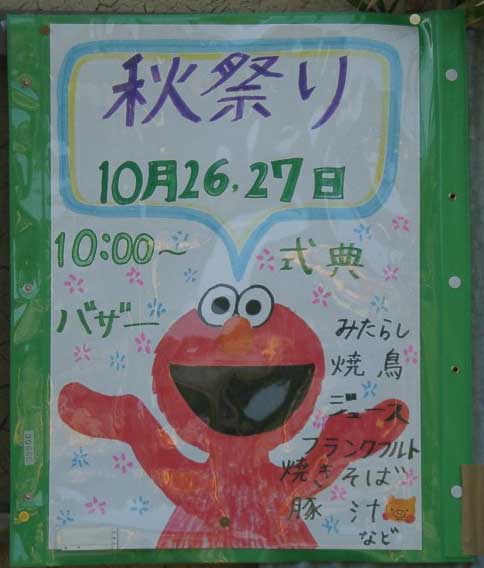 秋祭り
10月26,27日
10:00～ 式典
バザー
みたらし
焼鳥
ジュース
フランクフルト
焼きそば
豚汁
など